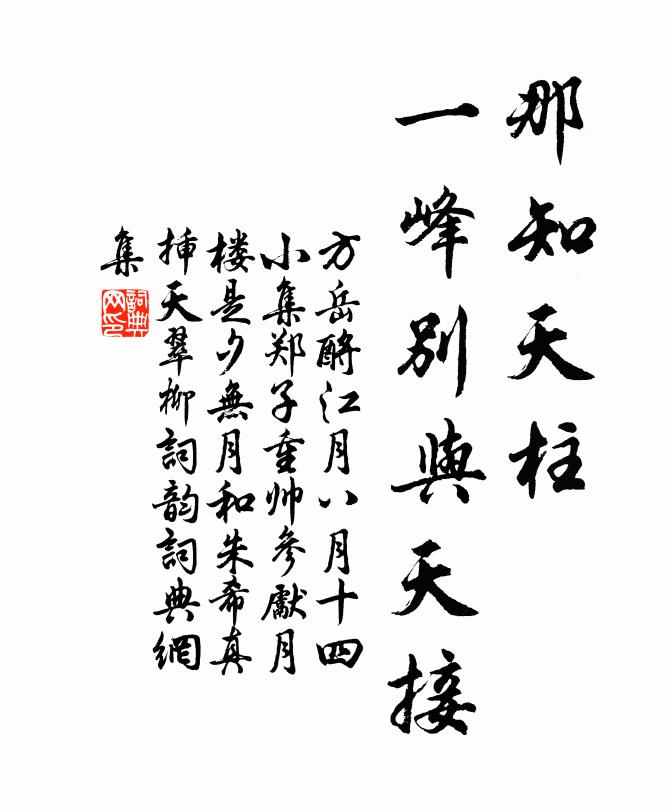 那知天柱
一峰別與天接
方岳酹江月八月十四
小集郑子重帅參獻月
楼是夕無月和朱希真
揷天翠柳詞韵詞典網
集
詞典网印